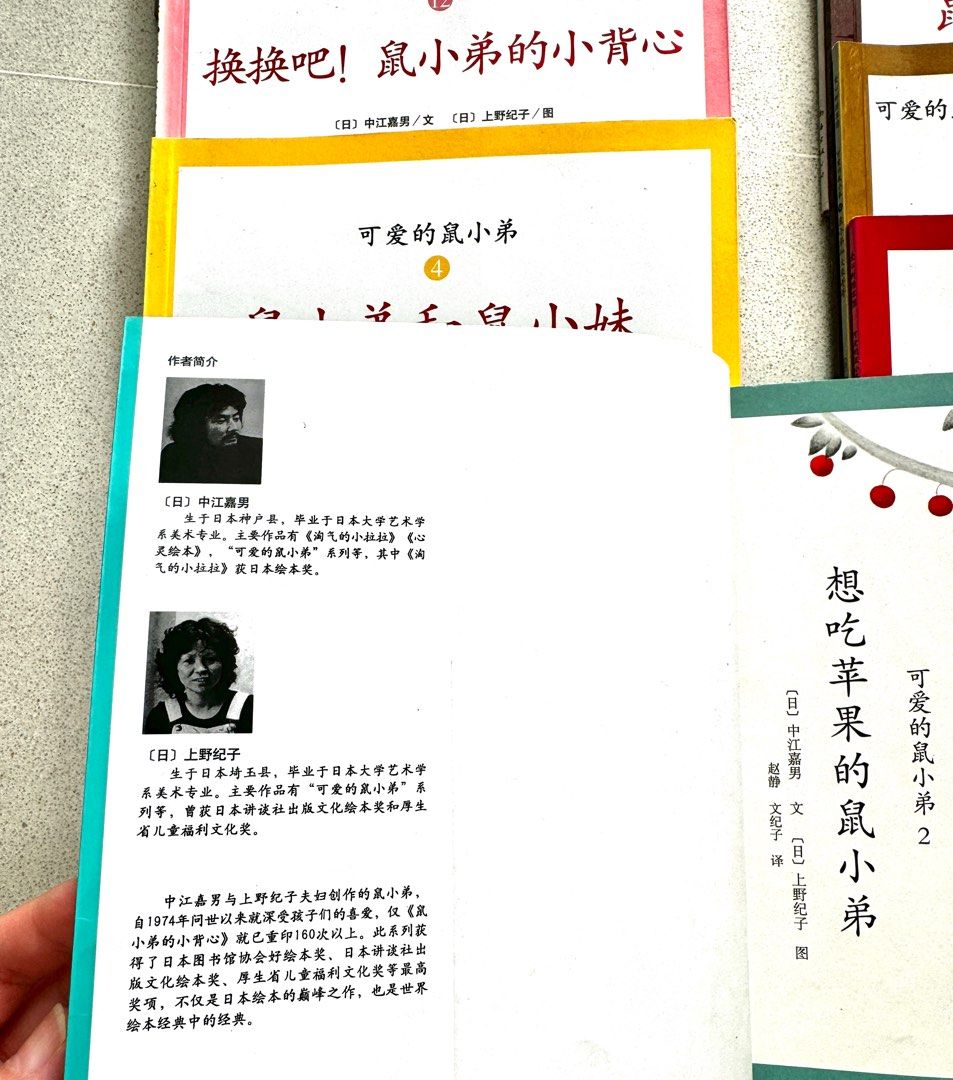 12
换换吧！鼠小弟的小背心
〔日〕中江嘉男／文 〔日〕上野纪子／图
可爱的鼠小弟
4
鼠小弟和鼠小妹
可爱的
作者简介
〔日〕中江嘉男
生于日本神户县，毕业于日本大学艺术学
系美术专业。主要作品有《淘气的小拉拉》《心
灵绘本》，“可爱的鼠小弟”系列等，其中《淘
气的小拉拉》获日本绘本奖。
〔日〕上野纪子
生于日本埼玉县，毕业于日本大学艺术学
系美术专业。主要作品有“可爱的鼠小弟”系
列等，曾获日本讲谈社出版文化绘本奖和厚生
省儿童福利文化奖。
中江嘉男与上野纪子夫妇创作的鼠小弟，
自1974年问世以来就深受孩子们的喜爱，仅《鼠
小弟的小背心》就已重印160次以上。此系列获
得了日本图书馆协会好绘本奖、日本讲谈社出
版文化绘本奖、厚生省儿童福利文化奖等最高
奖项，不仅是日本绘本的巅峰之作，也是世界
绘本经典中的经典。
可爱的鼠小弟 2
想吃苹果的鼠小弟
〔日〕中江嘉男 文 〔日〕上野纪子 图
赵静 文纪子 译